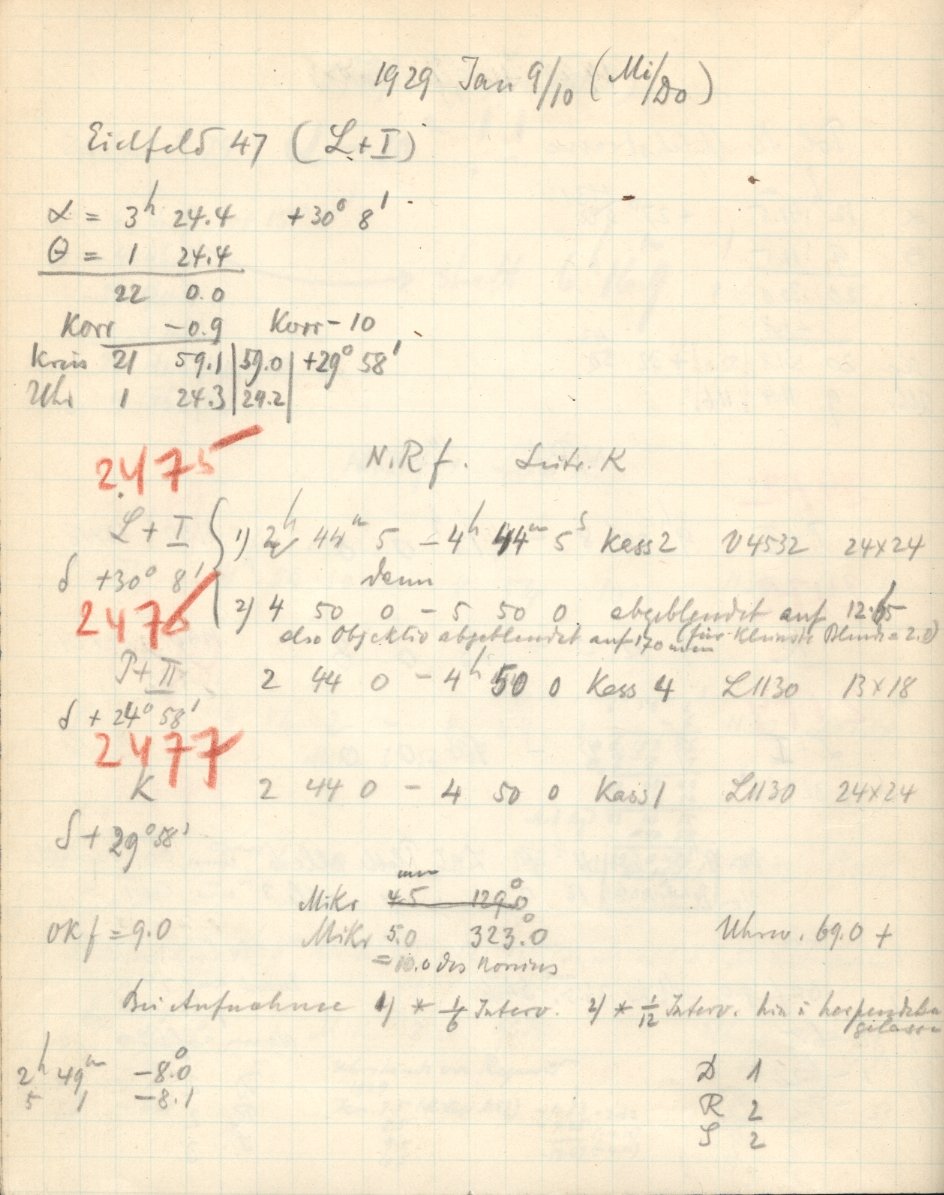 1929 Jan 9/10 (Mi/Do)
Eichfeld 47 (L+I)
α = 3h 24.4 +30° 8'
Θ = 1 24.4
22 0.0
Korr -0.9 Korr -10
Kreis 21 59.1 | 59.0 | +29° 58'
Uhr 1 24.3 | 24.2 |
2475 N.R f. Leitr. K
L+I 1) 2h 44m 5 - 4h 44m 5s Kass 2 V4532 24x24
δ +30° 8' dann
2476 2) 4 50 0 - 5 50 0 abgeblendet auf 12.65
also Objektiv abgeblendet auf 170 mm (für kleinste Blende 2.0)
P+II 2 44 0 - 4h 50 0 Kass 4 L1130 13x18
δ +24° 58'
2477
K 2 44 0 - 4 50 0 Kass 1 L1130 24x24
δ +29° 58'
mm
Mikr 4.5 129.0°
Okf = 9.0 Mikr 5.0 323.0° Uhrw. 69.0 +
= 10.0 des Nonius
Bei Aufnahme 1) * 1/6 Interv. 2) * 1/12 Interv. hin
gelassen
2h 49m -8.0° D 1
5 1 -8.1 R 2
S 2